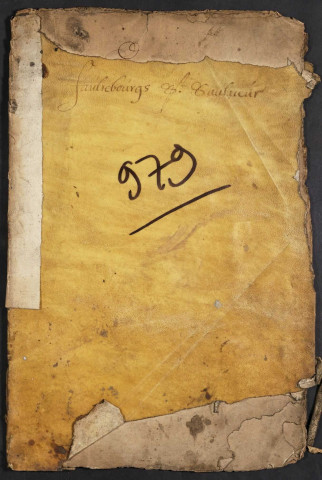 faulxbourgs St Saulueur
979